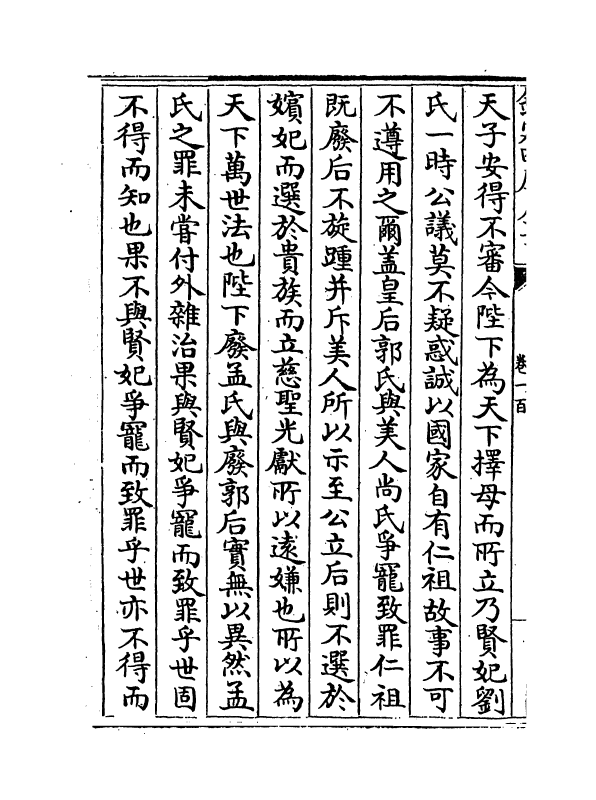 卷一百
天子安得不審今陛下為天下擇母而所立乃賢妃劉
氏一時公議莫不疑惑誠以國家自有仁祖故事不可
不遵用之爾盖皇后郭氏與美人尚氏爭寵致罪仁祖
既廢后不旋踵并斥美人所以示至公立后則不選於
嬪妃而選於貴族而立慈聖光獻所以遠嫌也所以為
天下萬世法也陛下廢孟氏與廢郭后實無以異然孟
氏之罪未嘗付外雜治果與賢妃爭寵而致罪乎世固
不得而知也果不與賢妃爭寵而致罪乎世亦不得而